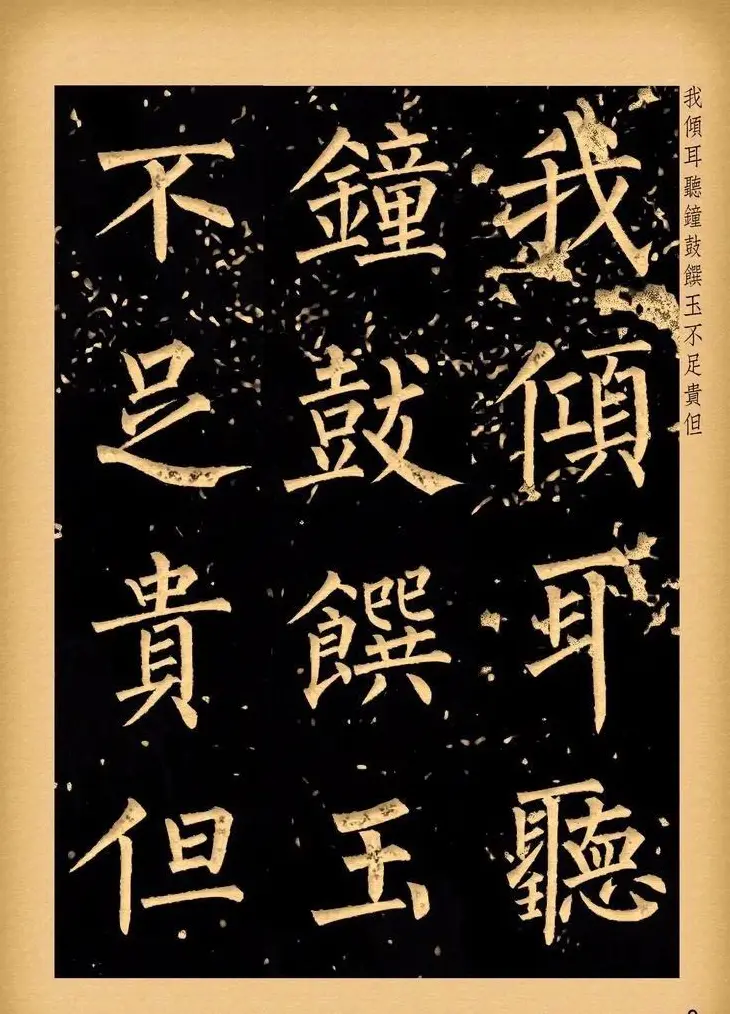 我傾耳聽
鐘鼓饌玉
不足貴但
我傾耳聽鐘鼓饌玉不足貴但